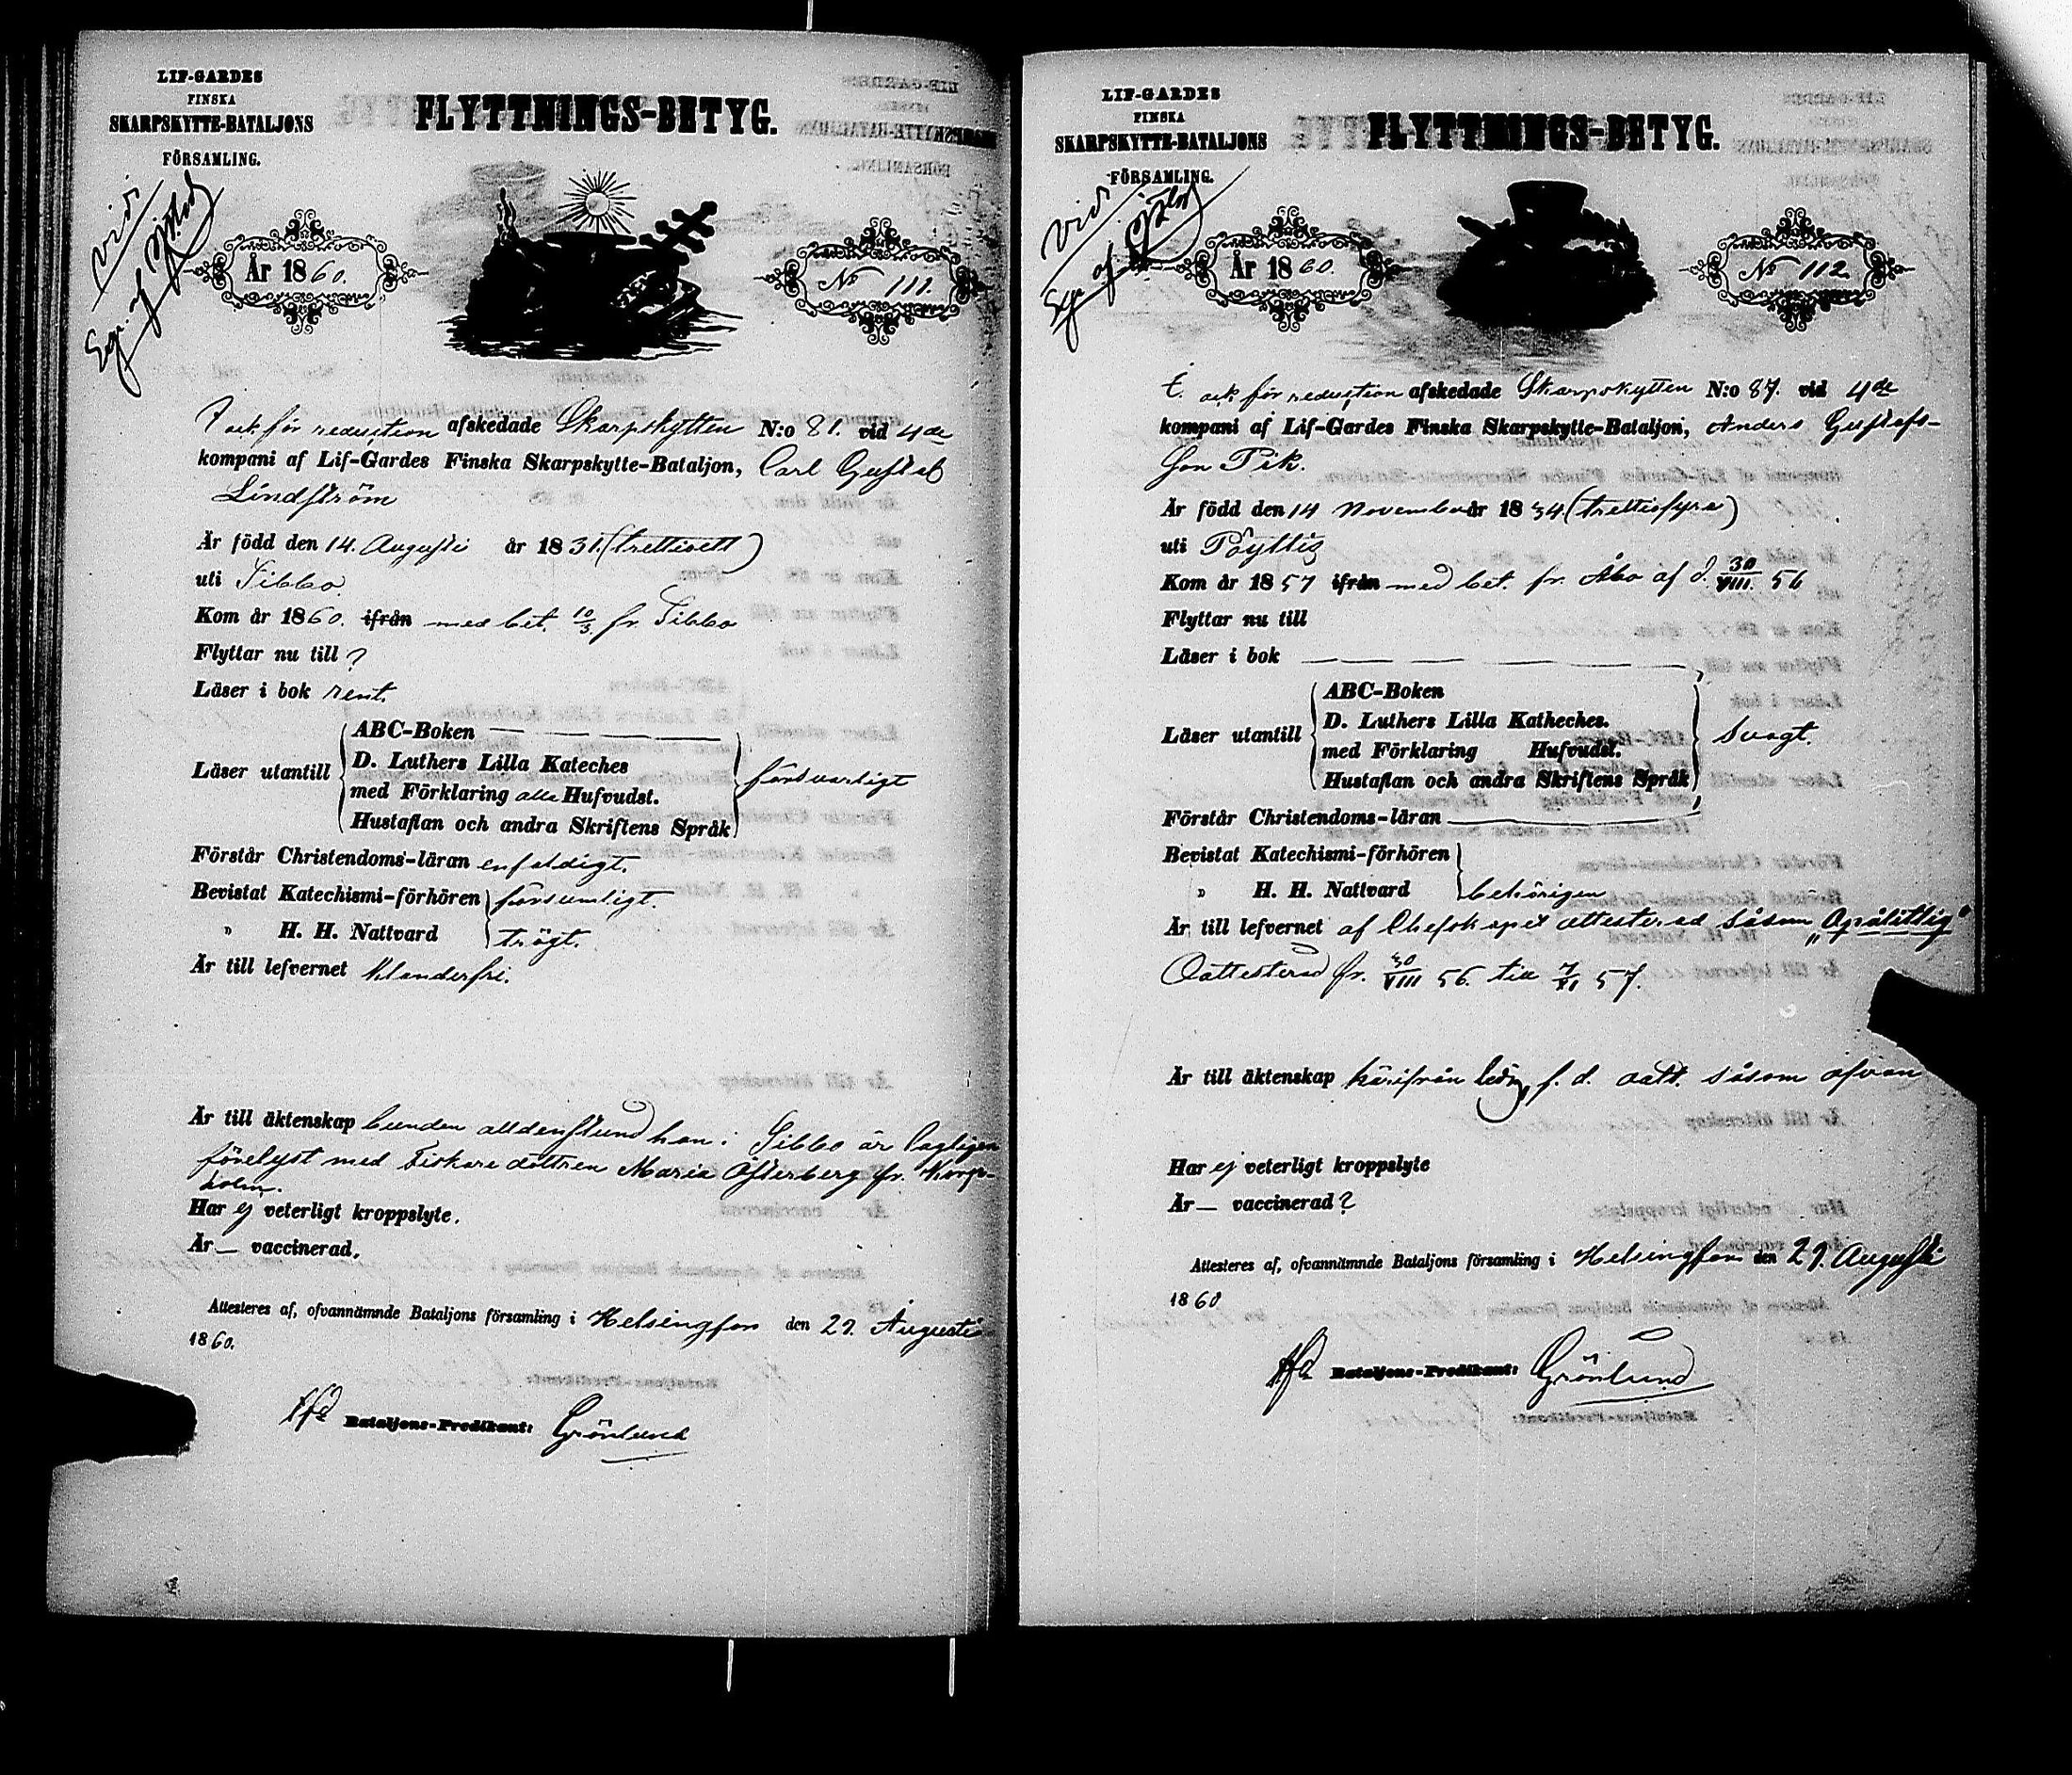 LIF-GARDES
FINSKA
SKARPSKYTTE-BATALJONS
FÖRSAMLING.
FLYTTNINGS-BETYG.
År 1860.
No 111.
för reduction afskedade Skarpskytten N:o 81. vid 4de
kompani af Lif-Gardes Finska Skarpskytte-Bataljon, Carl Gustaf
Lindström
Är född den 14. Augusti år 1831. (trettioett)
uti Sibbo.
Kom år 1860. ifrån med bet. 10/3. fr. Sibbo
Flyttar nu till ?
Läser i bok rent.
ABC-Boken
Läser utantill D. Luthers Lilla Kateches
med Förklaring alla Hufvudst.
Hustaflan och andra Skriftens Språk
försvarligt
Förstår Christendoms-läran enfaldigt.
Bevistat Katechismi-förhören försumligt.
" H. H. Nattvard trögt.
Är till lefvernet klanderfri.
Är till äktenskap bunden alldenstund han i Sibbo är lagligen
förelyst med Fiskare dottren Maria Österberg fr.
holm.
Har ej veterligt kroppslyte.
Är — vaccinerad.
Attesteres af, ofvannämnde Bataljons församling i Helsingfors den 29. Augusti
1860.
Bataljons-Predikant: Grönlund
LIF-GARDES
FINSKA
SKARPSKYTTE-BATALJONS
FÖRSAMLING.
FLYTTNINGS-BETYG.
År 1860.
No 112.
för reduction afskedade Skarpskytten N:o 87. vid 4de
kompani af Lif-Gardes Finska Skarpskytte-Bataljon, Anders Gustafs-
son Pik.
Är född den 14 November år 1834. (trettiofyra)
uti Pöyttis
Kom år 1857 ifrån med bet. fr. Åbo af d. 30/VIII. 56
Flyttar nu till
Läser i bok
ABC-Boken
D. Luthers Lilla Katheches.
Läser utantill med Förklaring Hufvudst.
Hustaflan och andra Skriftens Språk
svagt.
Förstår Christendoms-läran
Bevistat Katechismi-förhören
" H. H. Nattvard behörigen
Är till lefvernet af Chefskapet attesterad såsom „Opålitlig"
Oattesterad fr. 30/VIII 56. till 7/XI 57.
Är till äktenskap härifrån ledig, f. d. oatt. såsom ofvan
Har ej veterligt kroppslyte
Är — vaccinerad?
Attesteres af, ofvannämnde Bataljons församling i Helsingfors den 29. Augusti
1860
Bataljons-Predikant: Grönlund